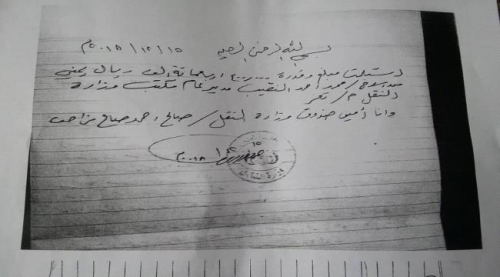 بسم الله الرحمن الرحيم ١٥/١٢/٢٠١٨م
استلمت مبلغ وقدره ٤٠٠٠٠٠ اربعمائة الف ريال يمني
من الاخ/ محمد احمد النقيب مدير عام مكتب وزارة
النقل م/ تعز
وانا أمين صندوق وزارة النقل/ صالح احمد صالح